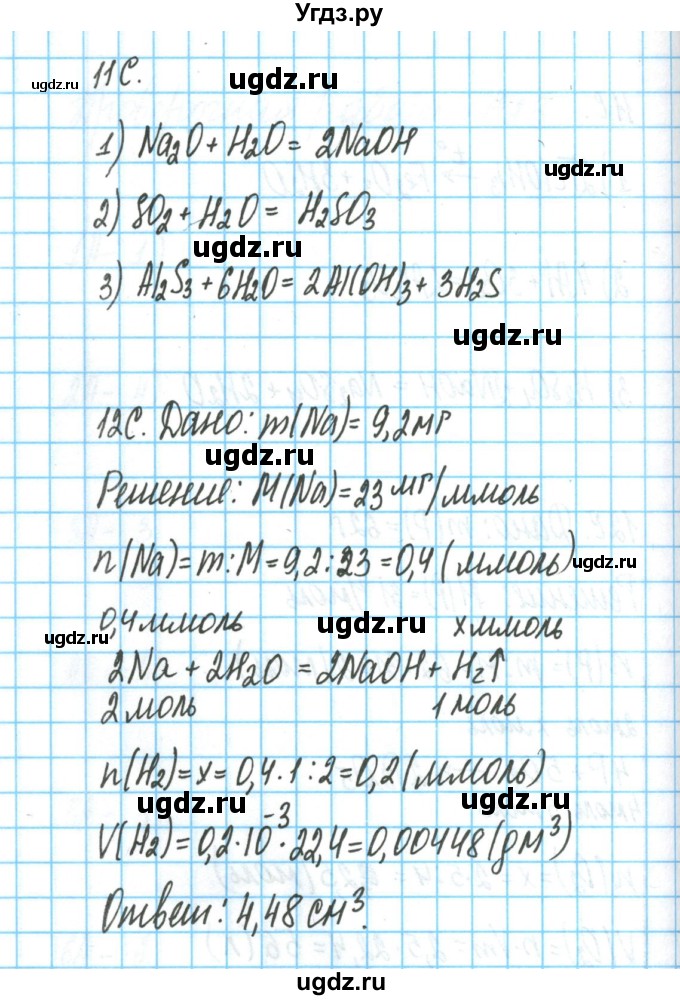 Угдз.ру
11С.
ugdz.ru
ugdz.ru
1) Na₂O + H₂O = 2NaOH
ugdz.ru
2) SO₂ + H₂O = H₂SO₃
ugdz.ru
3) Al₂S₃ + 6H₂O = 2Al(OH)₃ + 3H₂S
ugdz.ru
12С. Дано: m(Na) = 9,2мг
ugdz.ru
Решение: M(Na) = 23 мг/ммоль
n(Na) = m : M = 9,2 : 23 = 0,4 (ммоль)
ugdz.ru
0,4 ммоль x ммоль
ugdz.ru
ugdz.ru
2Na + 2H₂O = 2NaOH + H₂↑
2 моль 1 моль
n(H₂) = x = 0,4 · 1 : 2 = 0,2 (ммоль)
ugdz.ru
ugdz.ru
V(H₂) = 0,2 · 10⁻³ · 22,4 = 0,00448 (дм³)
Ответ: 4,48 см³.
ugdz.ru
ugdz.ru
ugdz.ru